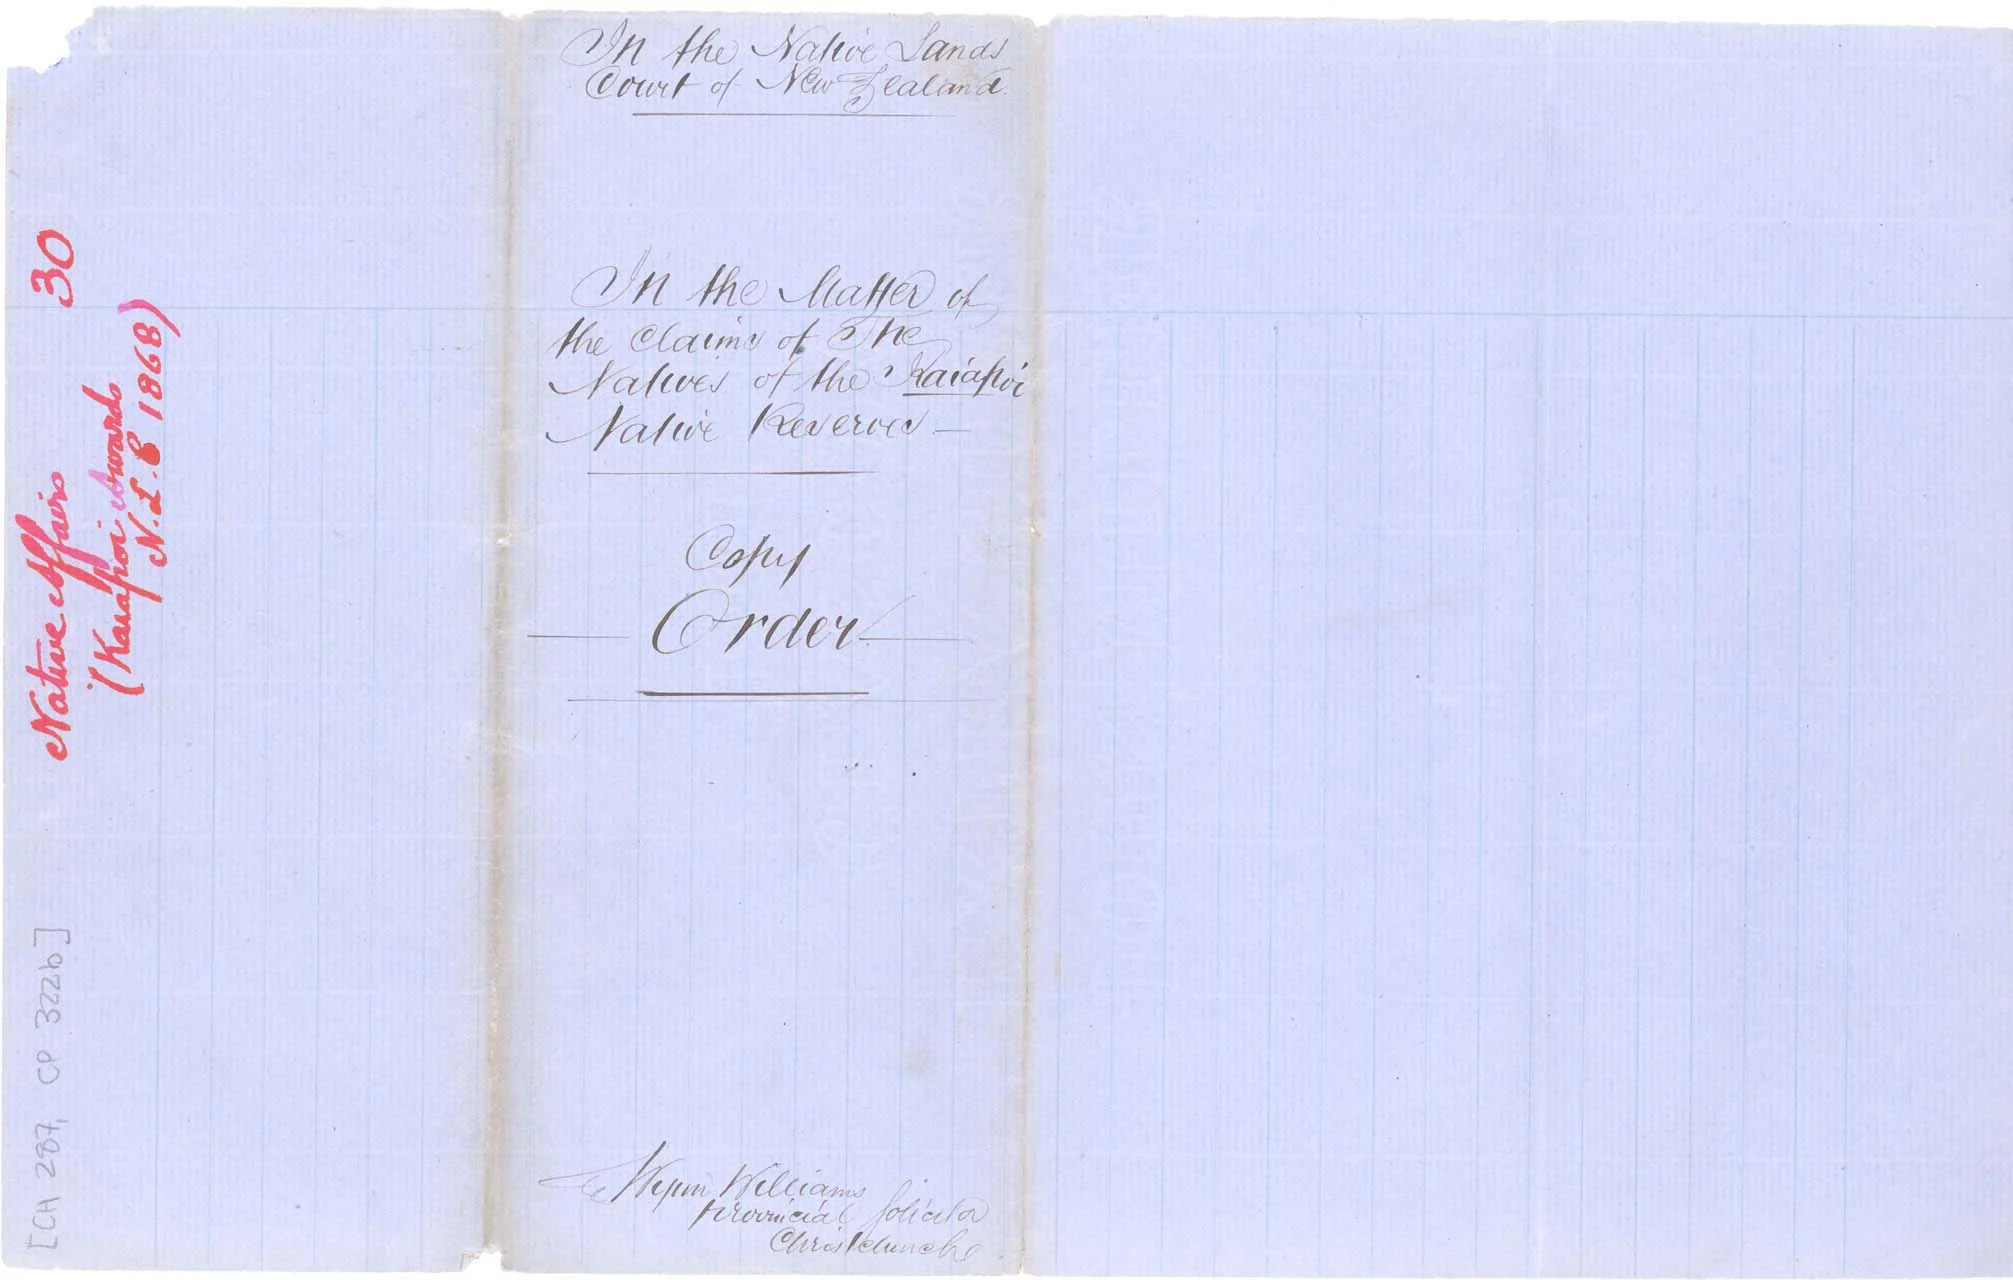 In the Native Lands
Court of New Zealand.
In the Matter of
the Claims of The
Natives of the Kaiapoi
Native Reserves —
Copy
Order
Wynn Williams
Provincial Solicitor
Christchurch
Native Affairs 30
(Kaiapoi Awards
N.L.C 1868)
[CH 287, CP 322b]